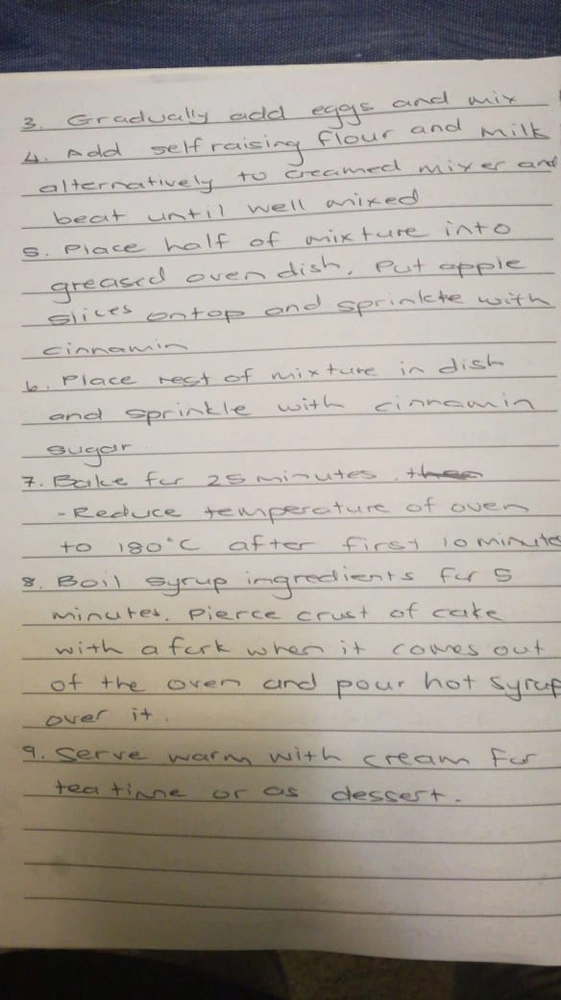 3. Gradually add eggs and mix
4. Add self raising flour and milk
alternatively to creamed mixer and
beat until well mixed
5. Place half of mixture into
greased oven dish. Put apple
slices ontop and sprinkle with
cinnamin
6. Place rest of mixture in dish
and sprinkle with cinnamin
sugar
7. Bake for 25 minutes.
- Reduce temperature of oven
to 180°C after first 10 minutes
8. Boil syrup ingredients for 5
minutes. Pierce crust of cake
with a fork when it comes out
of the oven and pour hot syrup
over it.
9. Serve warm with cream for
tea time or as dessert.